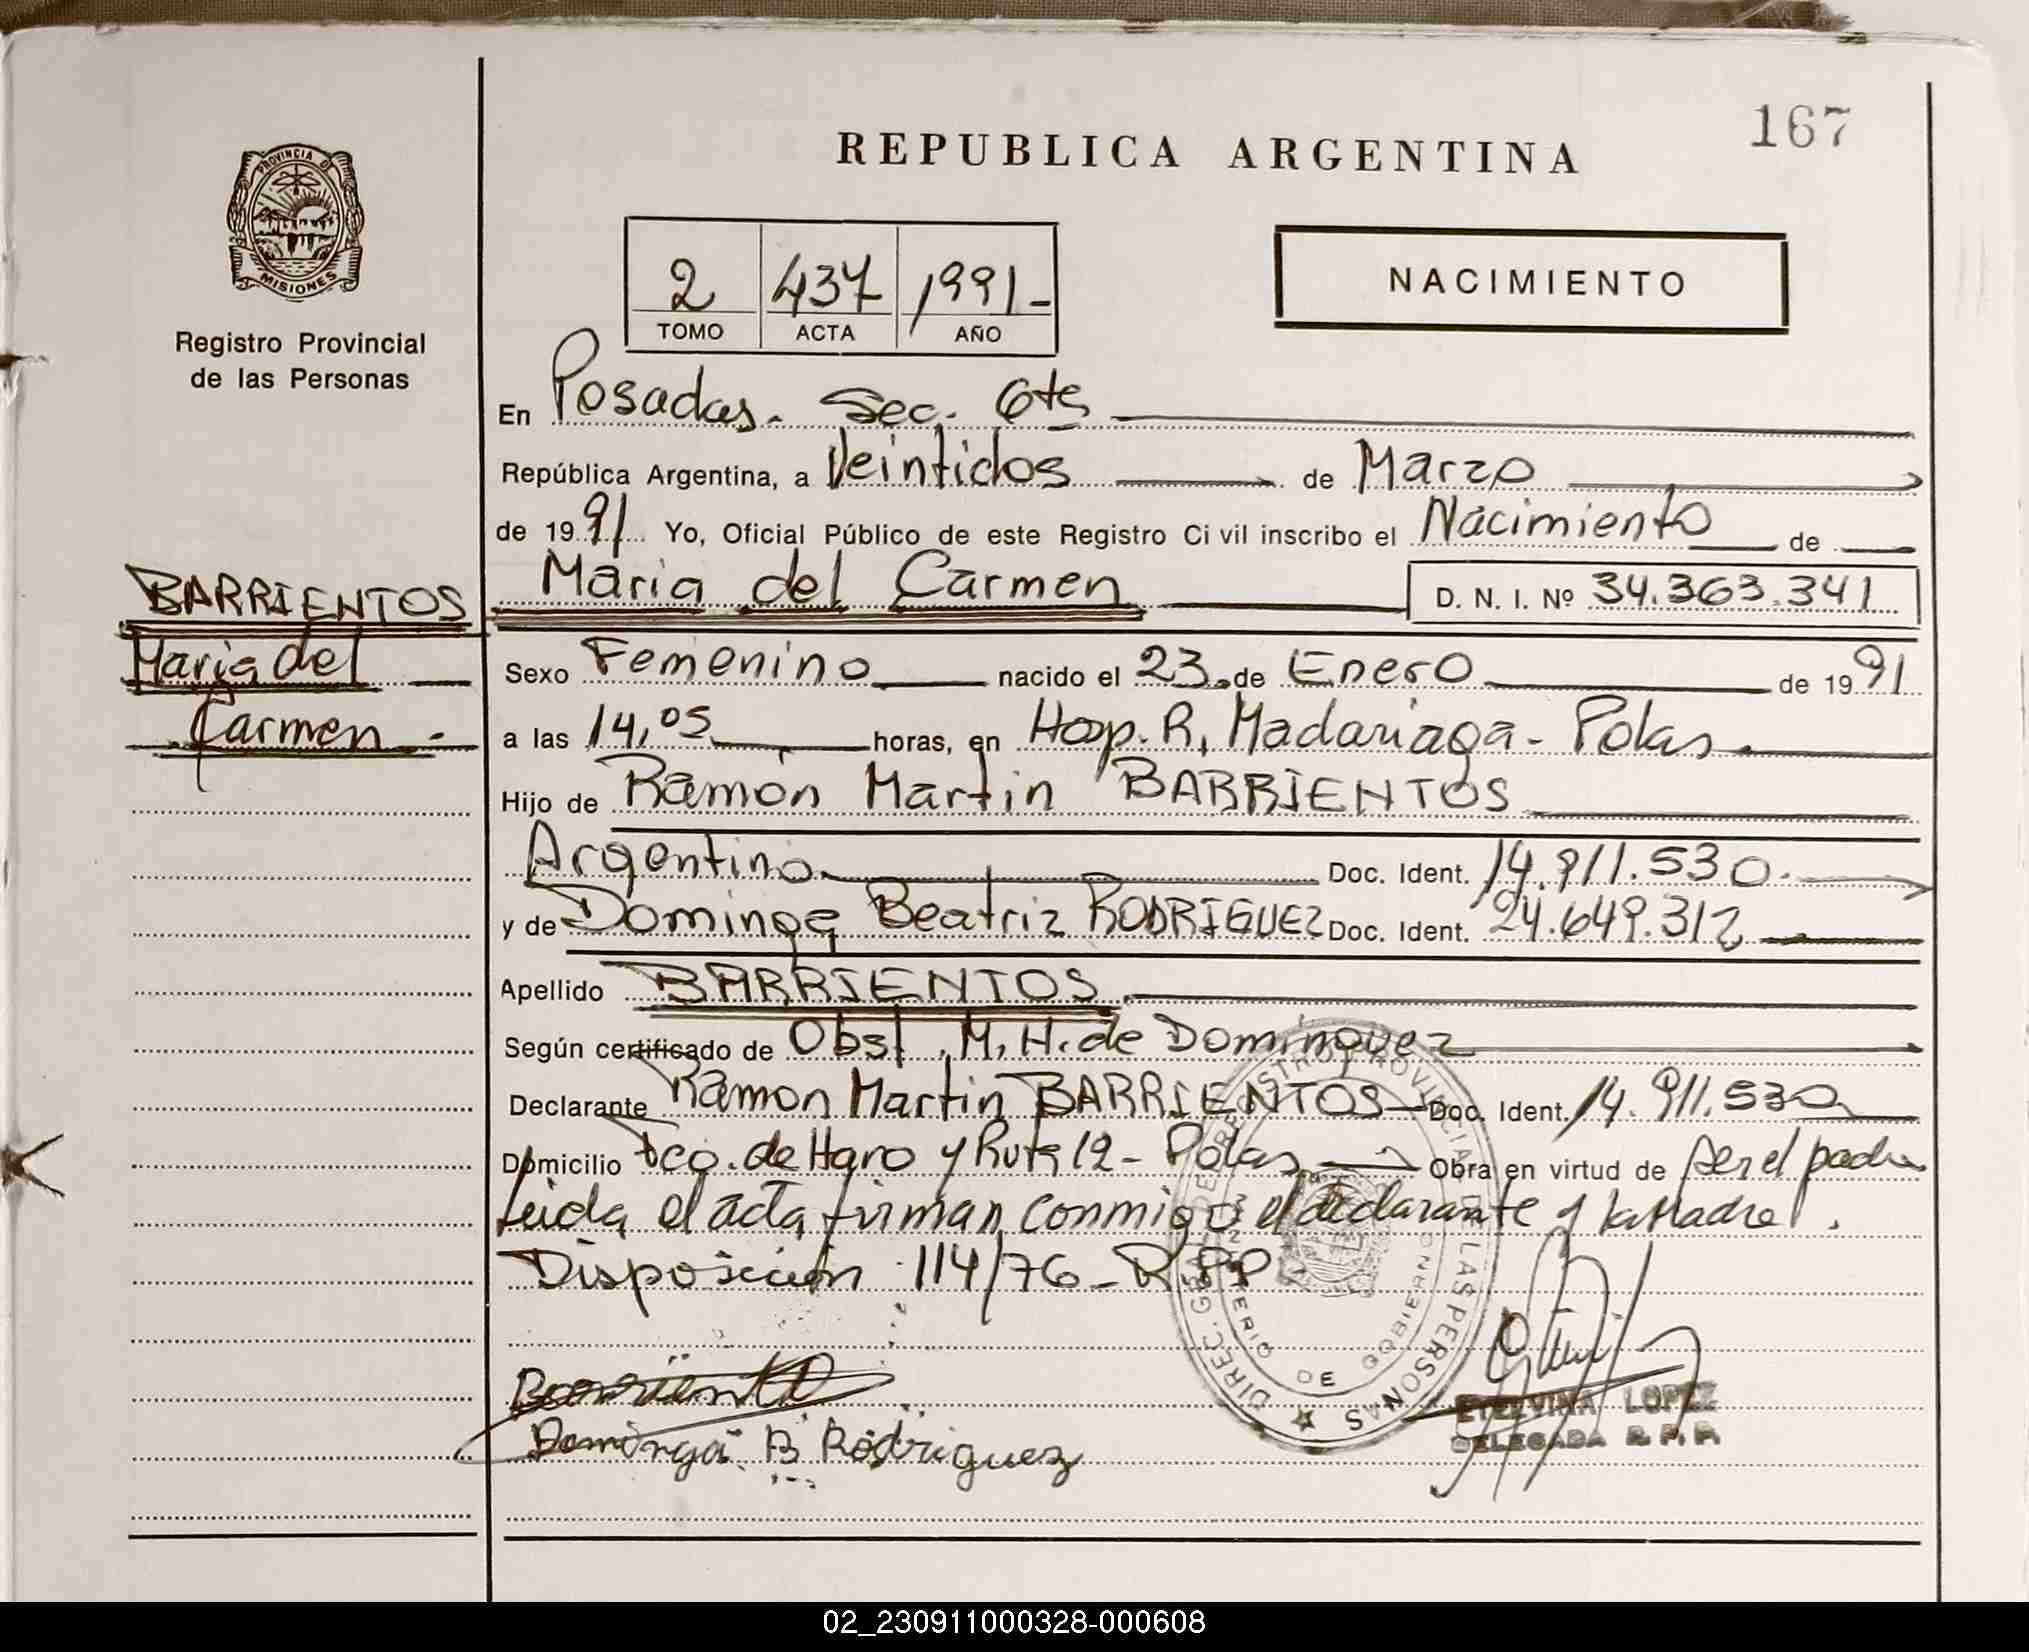 167
REPUBLICA ARGENTINA
PROVINCIA D
MISIONES
Registro Provincial
de las Personas
2 437 1991-
TOMO ACTA AÑO
NACIMIENTO
En Posadas. Sec. 6ta
República Argentina, a Veintidos de Marzo
de 1991 Yo, Oficial Público de este Registro Civil inscribo el Nacimiento de
Maria del Carmen D. N. I. Nº 34.363.341
BARRIENTOS
Maria del
Carmen.-
Sexo Femenino nacido el 23 de Enero de 1991
a las 14,05 horas, en Hosp. R. Madariaga - Pdas.
Hijo de Ramón Martin BARRIENTOS
Argentino Doc. Ident. 14.911.530.
y de Dominga Beatriz RODRIGUEZ Doc. Ident. 24.649.312
Apellido BARRIENTOS
Según certificado de Obst. M. H. de Dominguez
Declarante Ramon Martin BARRIENTOS Doc. Ident. 14.911.530
Domicilio Fco. de Haro y Ruta 12 - Pdas. Obra en virtud de ser el padre
Leida el acta firman conmigo el declarante y la Madre.
Disposición 114/76 - R.P.P.
DIREC. GRAL. DE REGISTRO PROVINCIAL DE LAS PERSONAS
MINISTERIO DE GOBIERNO
Barrientos
Dominga B Rodriguez
ETELVINA LOPEZ
DELEGADA R.P.P.
02_230911000328-000608